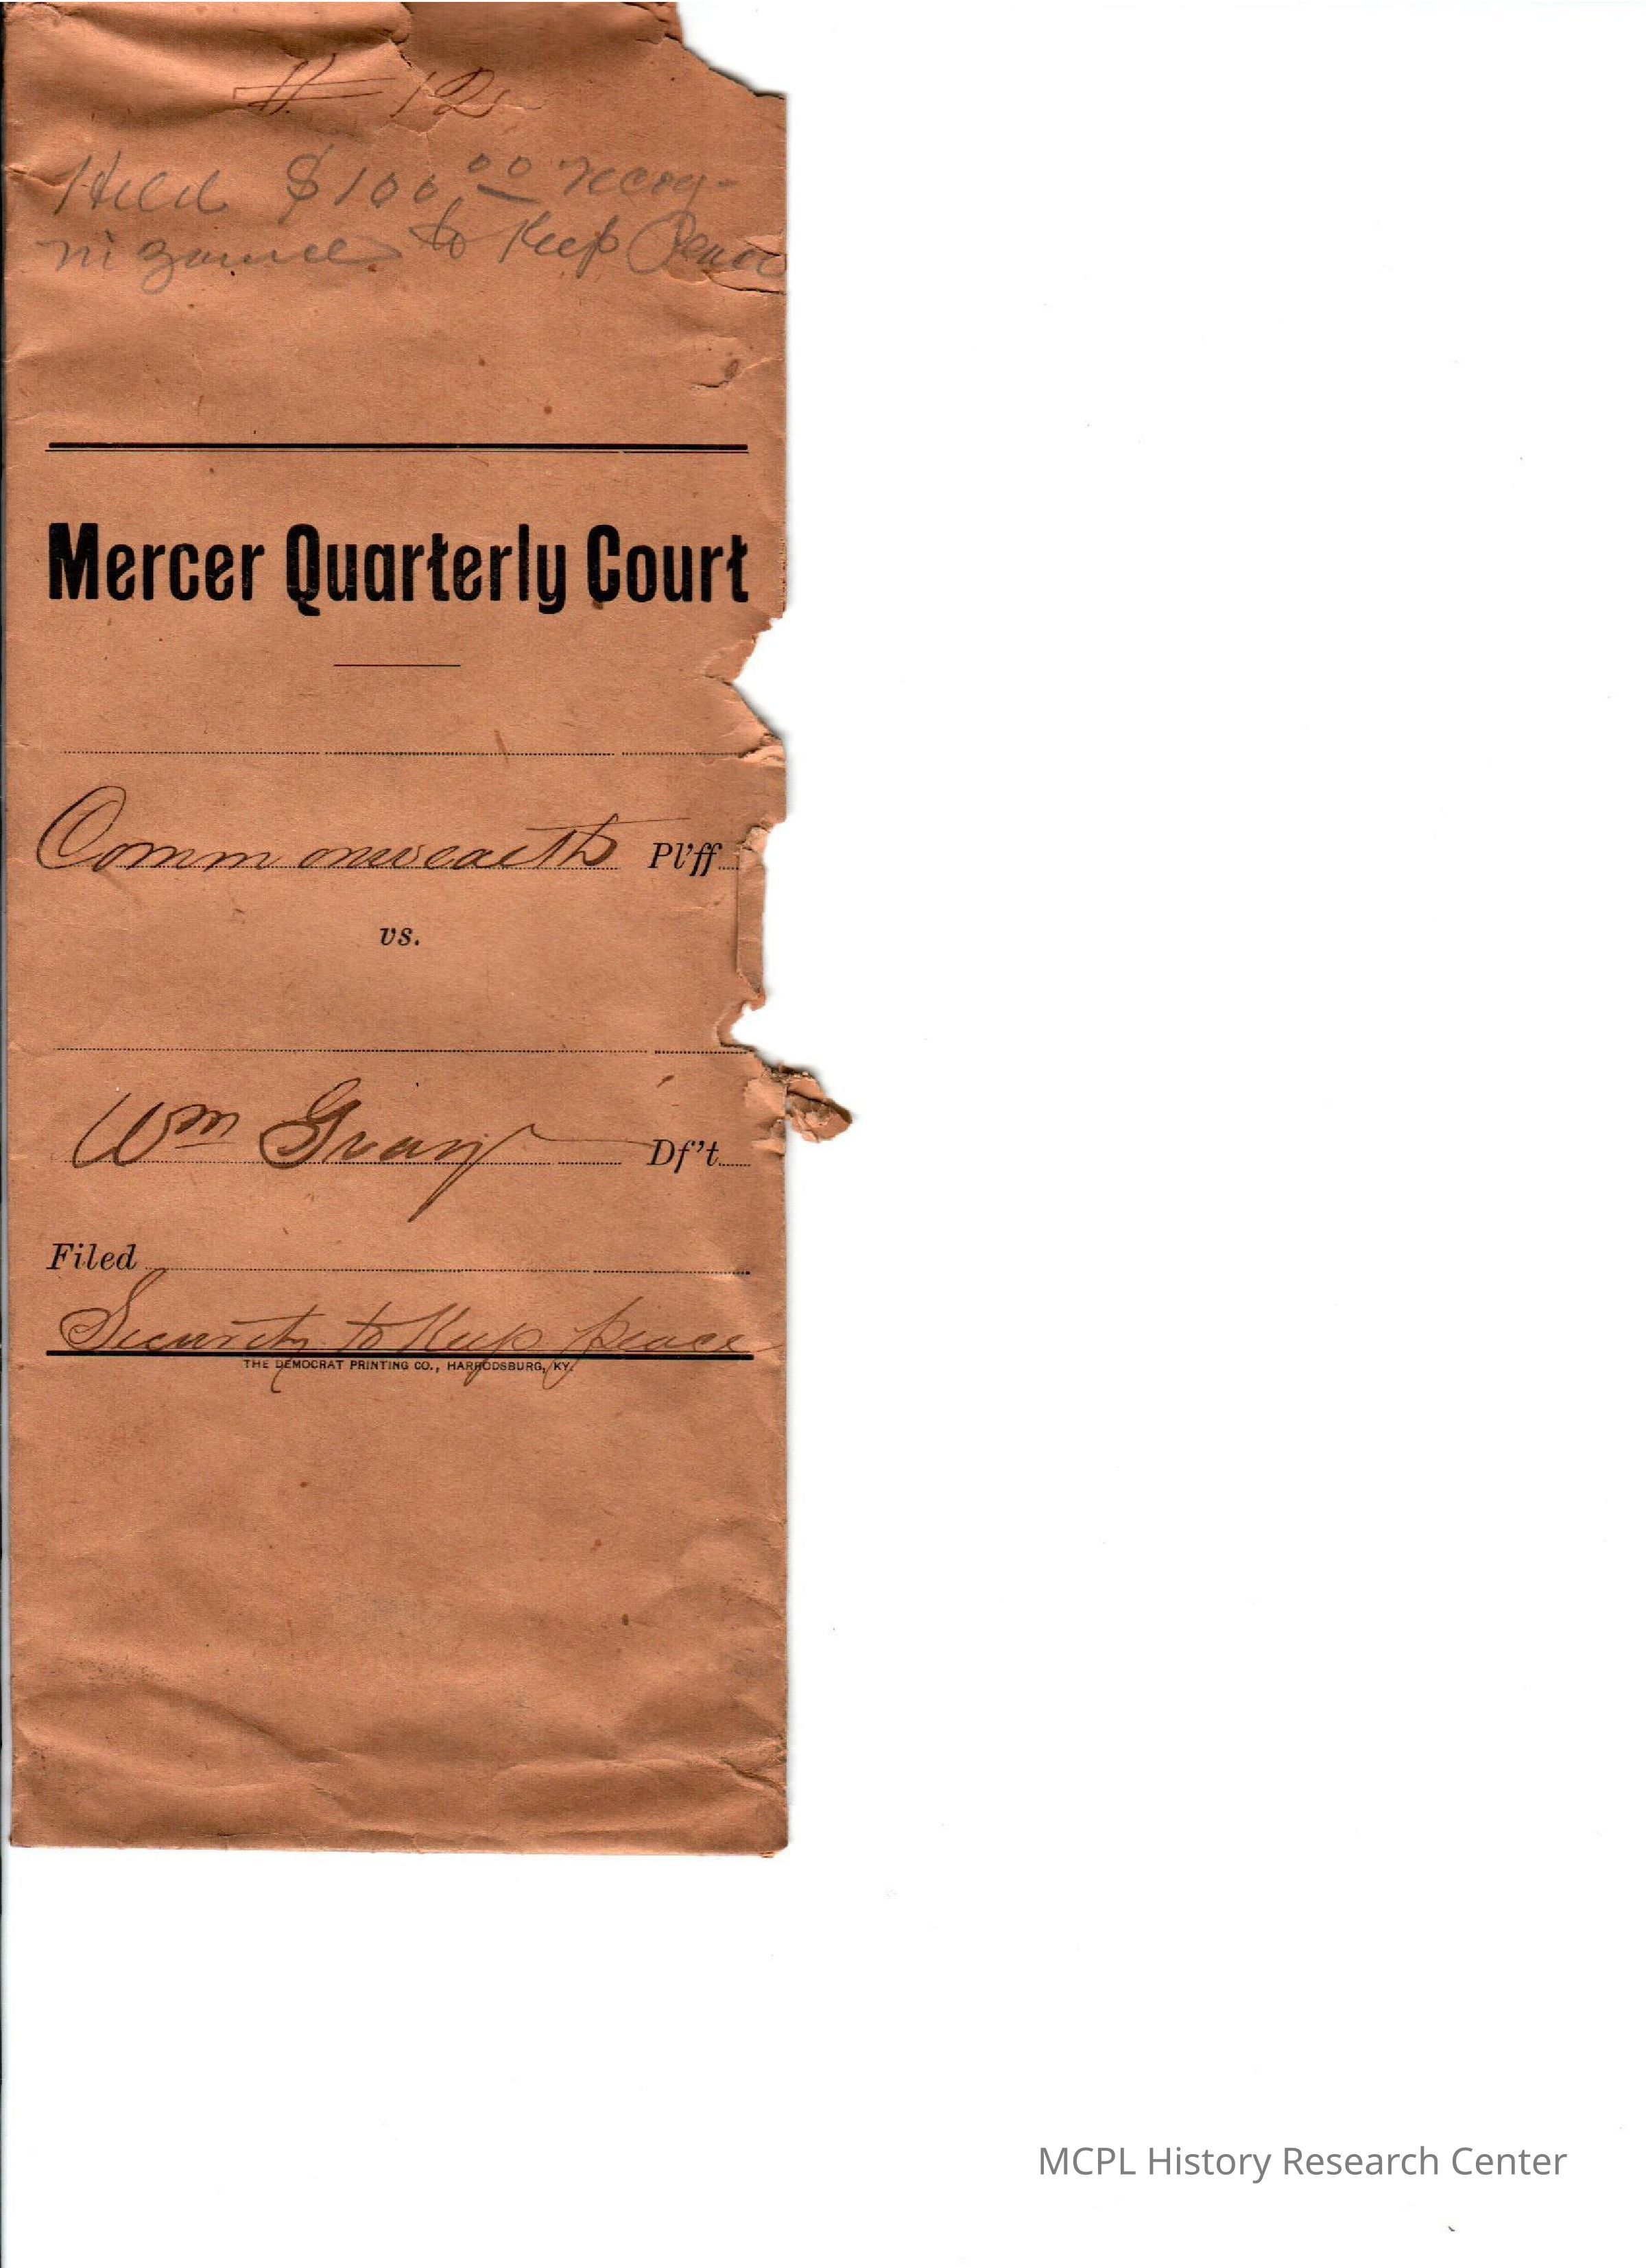 # 12
Held $100.00 recog-
nizance to Keep Peace
Mercer Quarterly Court
Commonwealth Pl'ff
vs.
Wm Gray Df't
Filed
Security to Keep peace
THE DEMOCRAT PRINTING CO., HARRODSBURG, KY.
MCPL History Research Center